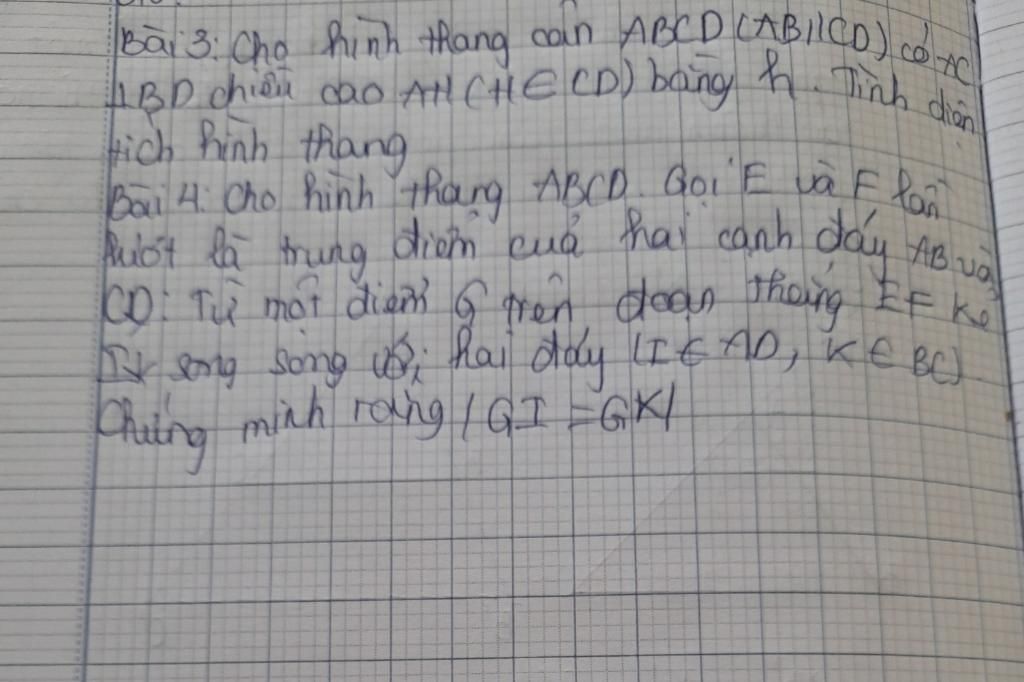 Bài 3: Cho hình thang cân ABCD (AB//CD) có AC
⊥BD chiều cao AH (H∈CD) bằng h. Tính diện
tích hình thang
Bài 4: Cho hình thang ABCD. Gọi E và F lần
lượt là trung điểm của hai cạnh đáy AB và
CD: Từ một điểm G trên đoạn thẳng EF kẻ
IK song song với hai đáy (I∈AD, K∈BC)
Chứng minh rằng /GI = GK/